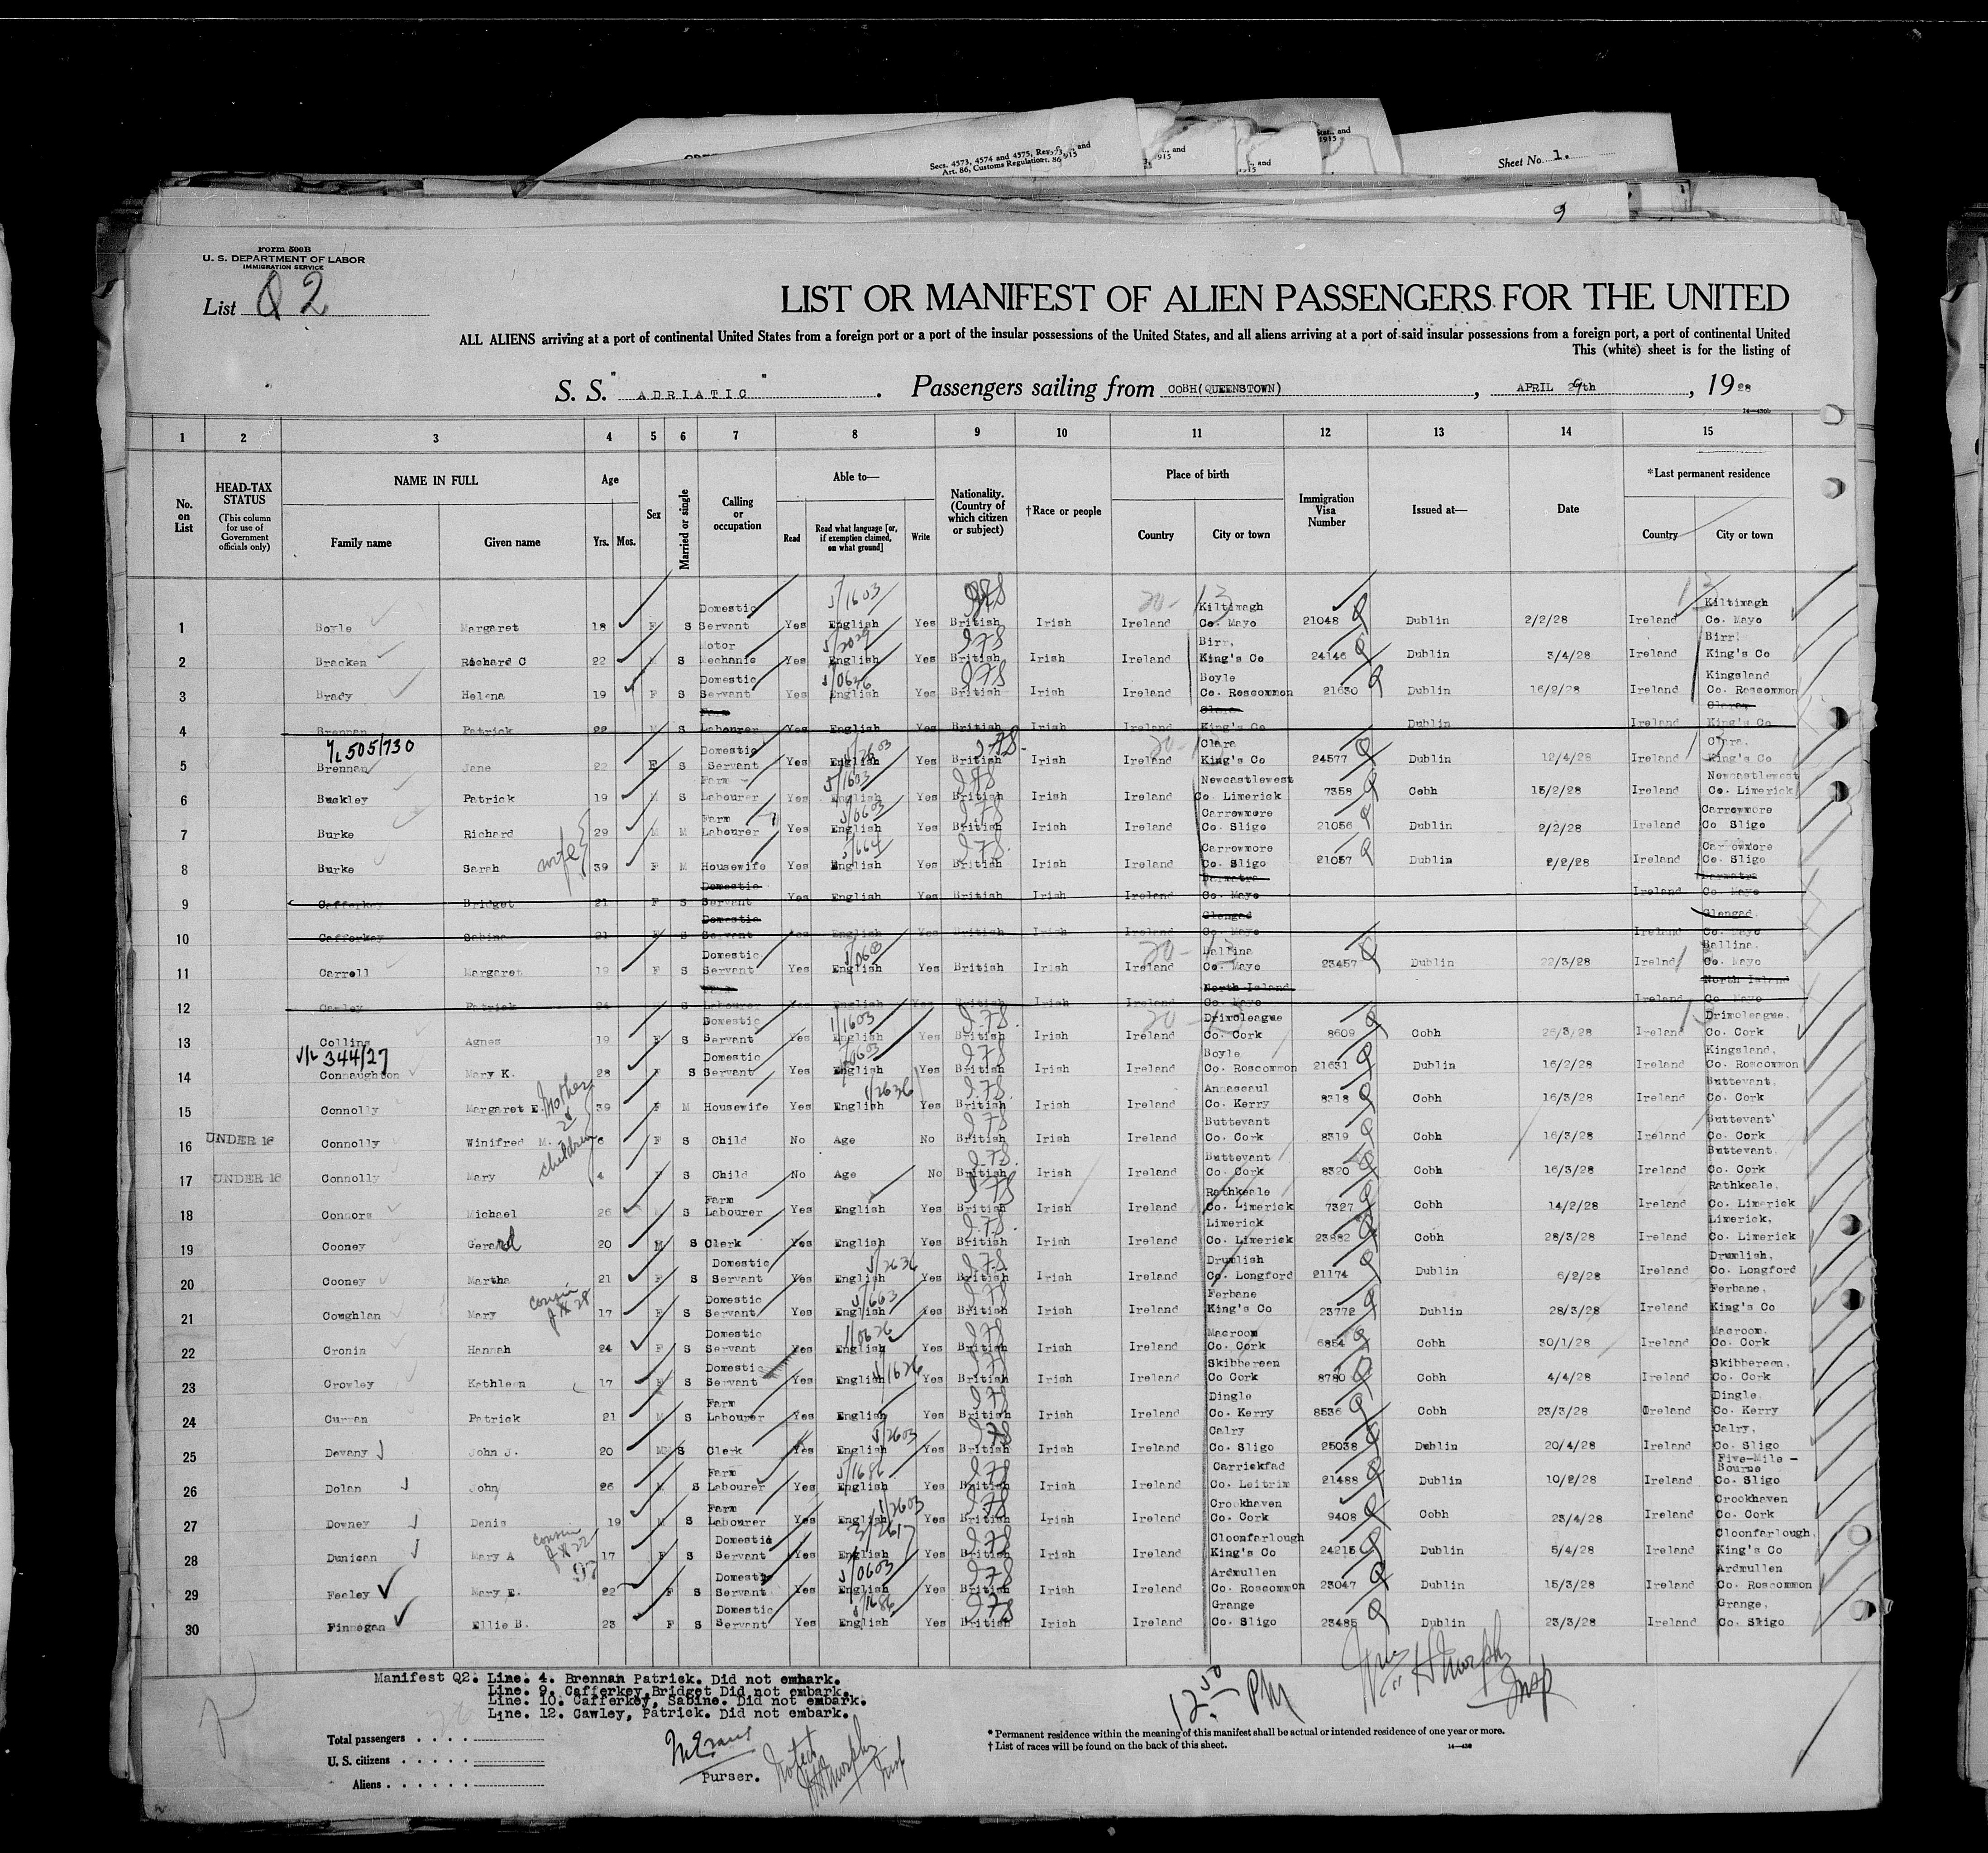 Secs. 4573, 4574 and 4575, Rev.
Art. 86, Customs Regulation
Stat., and
1915
Sheet No. 1.
9
Form 500B
U. S. DEPARTMENT OF LABOR
IMMIGRATION SERVICE
List Q 2
LIST OR MANIFEST OF ALIEN PASSENGERS FOR THE UNITED
ALL ALIENS arriving at a port of continental United States from a foreign port or a port of the insular possessions of the United States, and all aliens arriving at a port of said insular possessions from a foreign port, a port of continental United
This (white) sheet is for the listing of
S. S. "ADRIATIC". Passengers sailing from COBH(QUEENSTOWN), APRIL 29th, 1928
1 2 3 4 5 6 7 8 9 10 11 12 13 14 15
No. on List HEAD-TAX STATUS (This column for use of Government officials only) NAME IN FULL Family name Given name Age Yrs. Mos. Sex Married or single Calling or occupation Able to— Read Read what language [or, if exemption claimed, on what ground] Write Nationality. (Country of which citizen or subject) †Race or people Place of birth Country City or town Immigration Visa Number Issued at— Date *Last permanent residence Country City or town
1 Boyle Margaret 18 F S Domestic Servant Yes English Yes British Irish Ireland Kiltimagh Co. Mayo 21048 Dublin 2/2/28 Ireland Kiltimagh Co. Mayo
2 Bracken Richard C 22 M S Motor Mechanic Yes English Yes British Irish Ireland Birr, King's Co 24146 Dublin 3/4/28 Ireland Birr, King's Co
3 Brady Helena 19 F S Domestic Servant Yes English Yes British Irish Ireland Boyle Co. Roscommon 21630 Dublin 16/2/28 Ireland Kingsland Co. Roscommon
4 Brennan Patrick 22 M S Farm Labourer Yes English Yes British Irish Ireland Clara King's Co Dublin Ireland Clara, King's Co
505/730
5 Brennan Jane 22 F S Domestic Servant Yes English Yes British Irish Ireland Clara King's Co 24577 Dublin 12/4/28 Ireland Clara, King's Co
6 Buckley Patrick 19 M S Farm Labourer Yes English Yes British Irish Ireland Newcastlewest Co. Limerick 7358 Cobh 15/2/28 Ireland Newcastlewest Co. Limerick
7 Burke Richard 29 M M Farm Labourer Yes English Yes British Irish Ireland Carrowmore Co. Sligo 21056 Dublin 2/2/28 Ireland Carrowmore Co Sligo
8 Burke Sarah wife 39 F M Housewife Yes English Yes British Irish Ireland Carrowmore Co. Sligo 21057 Dublin 2/2/28 Ireland Carrowmore Co. Sligo
9 Cafferkey Bridget 21 F S Domestic Servant Yes English Yes British Irish Ireland Co. Mayo Ireland Co. Mayo
10 Cafferkey Sabina 21 F S Domestic Servant Yes English Yes British Irish Ireland Glengad Co. Mayo Ireland Glengad Co. Mayo
11 Carroll Margaret 19 F S Domestic Servant Yes English Yes British Irish Ireland Ballina Co. Mayo 23457 Dublin 22/3/28 Irelnd Ballina, Co. Mayo
12 Cawley Patrick 24 S Farm Labourer Yes English Yes British Irish Ireland North Island Co. Mayo Ireland North Island Co. Mayo
13 Collins Agnes 19 F S Domestic Servant Yes English Yes British Irish Ireland Drimoleague Co. Cork 8609 Cobh 26/3/28 Ireland Drimoleague, Co. Cork
344/27
14 Connaughton Mary K. 28 F S Domestic Servant Yes English Yes British Irish Ireland Boyle Co. Roscommon 21631 Dublin 16/2/28 Ireland Kingsland, Co. Roscommon
15 Connolly Margaret E. Mother 39 F M Housewife Yes English Yes British Irish Ireland Annascaul Co. Kerry 8318 Cobh 16/3/28 Ireland Buttevant, Co. Cork
16 UNDER 16 Connolly Winifred M. children 6 F S Child No Age No British Irish Ireland Buttevant Co. Cork 8319 Cobh 16/3/28 Ireland Buttevant Co. Cork
17 UNDER 16 Connolly Mary 4 F S Child No Age No British Irish Ireland Buttevant Co. Cork 8320 Cobh 16/3/28 Ireland Buttevant, Co. Cork
18 Connors Michael 26 M S Farm Labourer Yes English Yes British Irish Ireland Rathkeale Co. Limerick 7327 Cobh 14/2/28 Ireland Rathkeale, Co. Limerick
19 Cooney Gerard 20 M S Clerk Yes English Yes British Irish Ireland Limerick Co. Limerick 23882 Cobh 28/3/28 Ireland Limerick, Co. Limerick
20 Cooney Martha 21 F S Domestic Servant Yes English Yes British Irish Ireland Drumlish Co. Longford 21174 Dublin 6/2/28 Ireland Drumlish, Co. Longford
21 Coughlan Mary cousin 17 F S Domestic Servant Yes English Yes British Irish Ireland Ferbane King's Co 23772 Dublin 28/3/28 Ireland Ferbane, King's Co
22 Cronin Hannah 24 F S Domestic Servant Yes English Yes British Irish Ireland Macroom Co. Cork 6854 Cobh 30/1/28 Ireland Macroom, Co. Cork
23 Crowley Kathleen 17 F S Domestic Servant Yes English Yes British Irish Ireland Skibbereen Co Cork 8780 Cobh 4/4/28 Ireland Skibbereen, Co. Cork
24 Curran Patrick 21 M S Farm Labourer Yes English Yes British Irish Ireland Dingle Co. Kerry 8536 Cobh 23/3/28 Oreland Dingle, Co. Kerry
25 Devany John J. 20 M S Clerk Yes English Yes British Irish Ireland Calry Co. Sligo 25038 Dublin 20/4/28 Ireland Calry, Co. Sligo
26 Dolan John 26 M S Farm Labourer Yes English Yes British Irish Ireland Carrickfad Co. Leitrim 21488 Dublin 10/2/28 Ireland Five-Mile-Bourne Co. Sligo
27 Downey Denis 19 M S Farm Labourer Yes English Yes British Irish Ireland Crookhaven Co. Cork 9408 Cobh 23/4/28 Ireland Crookhaven Co. Cork
28 Dunican Mary A cousin 17 F S Domestic Servant Yes English Yes British Irish Ireland Cloonfarlough King's Co 24215 Dublin 5/4/28 Ireland Cloonfarlough, King's Co
29 Feeley Mary E. 22 F S Domestic Servant Yes English Yes British Irish Ireland Ardmullen Co. Roscommon 23047 Dublin 15/3/28 Ireland Ardmullen Co. Roscommon
30 Finnegan Ellie B. 23 F S Domestic Servant Yes English Yes British Irish Ireland Grange Co. Sligo 23485 Dublin 23/3/28 Ireland Grange, Co. Sligo
Manifest Q2. Line. 4. Brennan Patrick. Did not embark.
Line. 9. Cafferkey, Bridget Did not embark.
Line. 10. Cafferkey, Sabine. Did not embark.
Line. 12. Cawley, Patrick. Did not embark.
12 50 PM
H Murphy Insp
Total passengers
U. S. citizens
Aliens
Purser.
* Permanent residence within the meaning of this manifest shall be actual or intended residence of one year or more.
† List of races will be found on the back of this sheet.